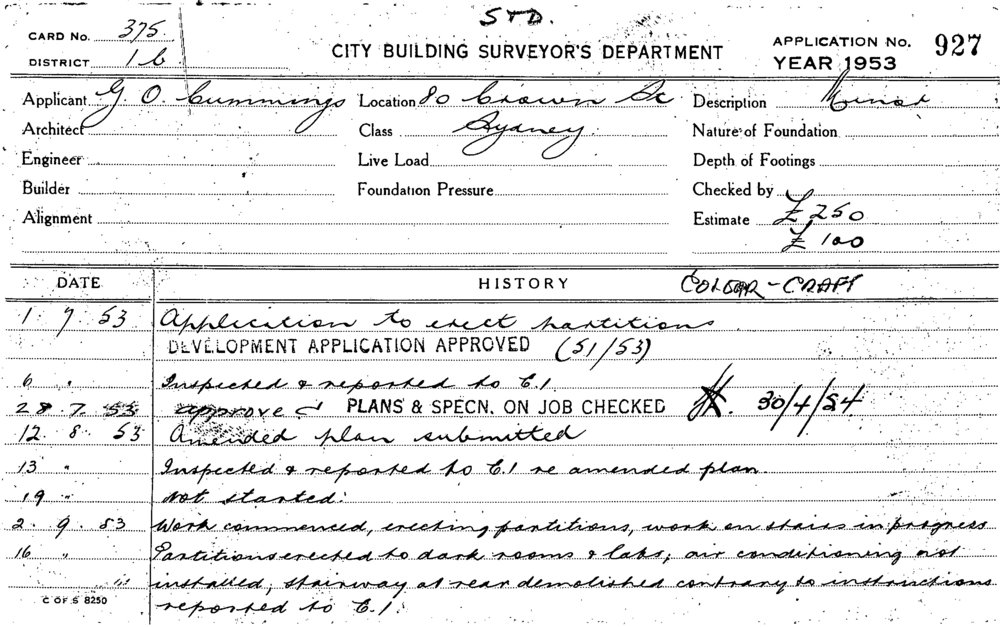 STD.
CARD No. 375
DISTRICT 1b
CITY BUILDING SURVEYOR'S DEPARTMENT
APPLICATION No. 927
YEAR 1953
Applicant G O. Cummings Location 80 Crown St Description Minor
Architect Class Sydney Nature of Foundation
Engineer Live Load Depth of Footings
Builder Foundation Pressure Checked by
Alignment Estimate £250
£100
DATE HISTORY COLOR-CRAFT
1 7 53 Application to erect partitions
DEVELOPMENT APPLICATION APPROVED (51/53)
6 " Inspected & reported to E.1
28 7 53 approved PLANS & SPECN. ON JOB CHECKED 30/4/54
12. 8 53 Amended plan submitted
13 " Inspected & reported to E.1 re amended plan
19 " Not started.
2. 9. 53 Work commenced, erecting partitions, work on stairs in progress
16 " Partitions erected to dark rooms & labs; air conditioning not
installed; stairway at rear demolished contrary to instructions
reported to E.1.
C OF S 8250